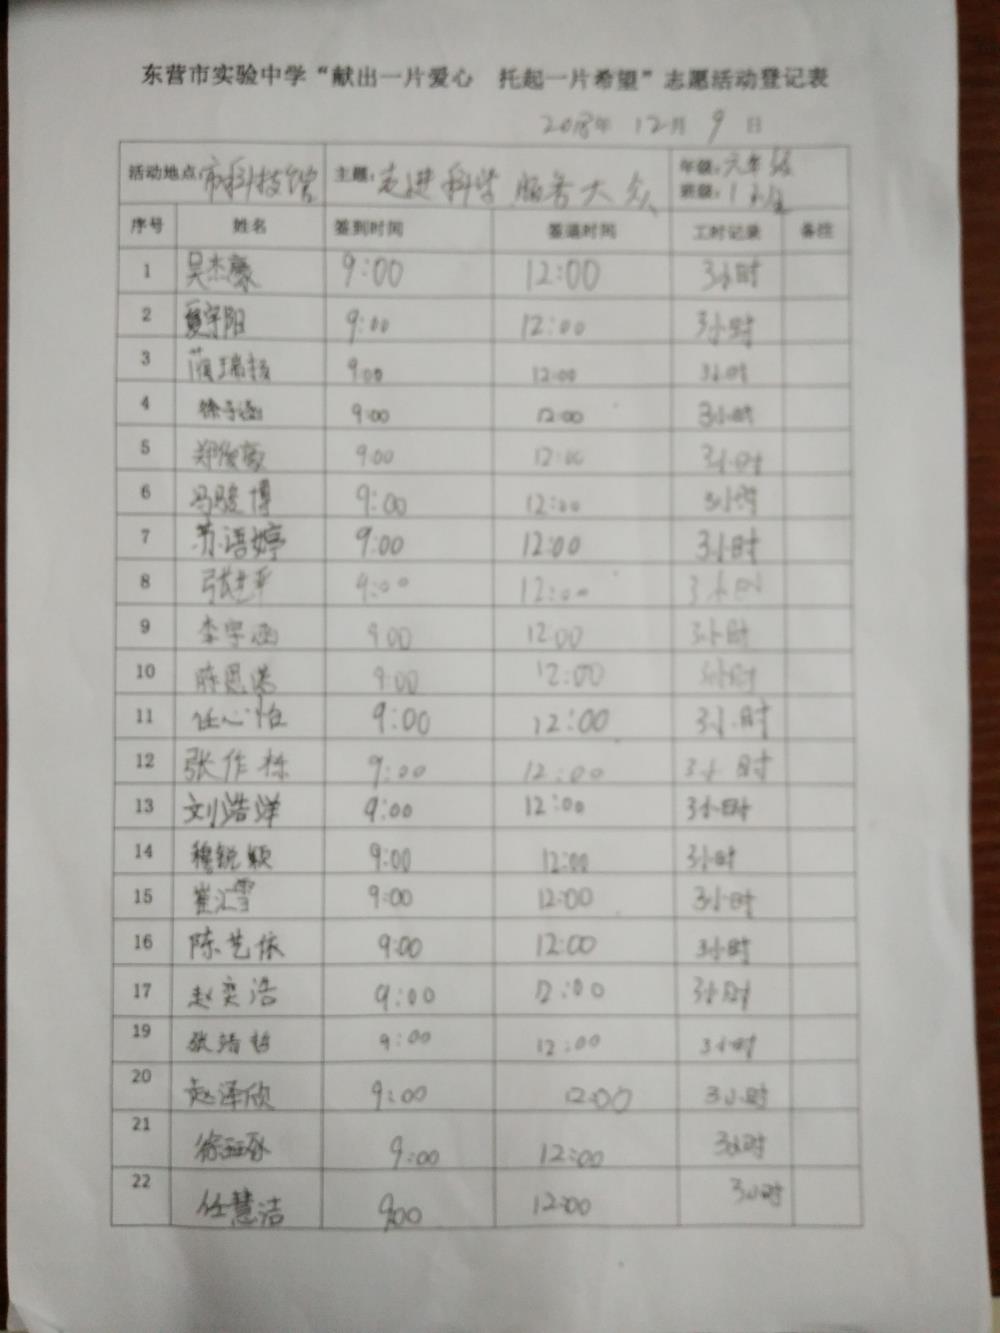 东营市实验中学“献出一片爱心 托起一片希望”志愿活动登记表
2018年 12月 9 日
活动地点:市科技馆 主题:走进科学 服务大众 年级:六年级
班级:1
序号 姓名 签到时间 签退时间 工时记录 备注
1 吴杰豪 9:00 12:00 3小时
2 夏宇阳 9:00 12:00 3小时
3 瑞扬 9:00 12:00 3小时
4 徐子涵 9:00 12:00 3小时
5 郑俊豪 9:00 12:00 3小时
6 冯骏博 9:00 12:00 3小时
7 苏语婷 9:00 12:00 3小时
8 张 9:00 12:00 3小时
9 李宇涵 9:00 12:00 3小时
10 9:00 12:00 3小时
11 任心怡 9:00 12:00 3小时
12 张作栋 9:00 12:00 3小时
13 刘浩洋 9:00 12:00 3小时
14 穆锐颖 9:00 12:00 3小时
15 崔汇雪 9:00 12:00 3小时
16 陈艺依 9:00 12:00 3小时
17 赵奕浩 9:00 12:00 3小时
19 张靖哲 9:00 12:00 3小时
20 赵泽欣 9:00 12:00 3小时
21 徐 9:00 12:00 3小时
22 任慧洁 9:00 12:00 3小时